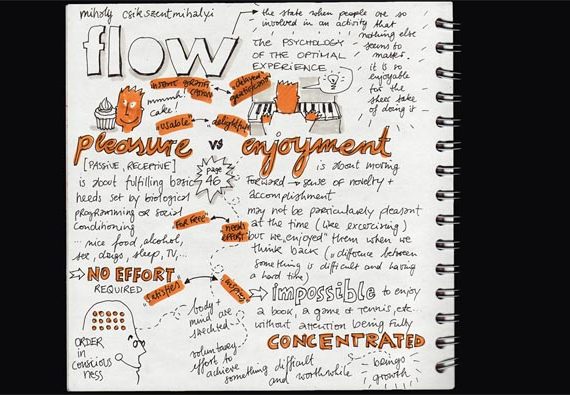 mihaly csikszentmihalyi
flow
the state when people are so
involved in an activity that
nothing else
seems to
matter.
it is so
enjoyable
for the
sheer sake
of doing it
THE PSYCHOLOGY
OF THE OPTIMAL
EXPERIENCE
instant
"delayed
mmmh!
cake!
"usable"
delightful
pleasure vs enjoyment
[PASSIVE, RECEPTIVE]
is about fulfilling basic
needs set by biological
programming or social
conditioning
... nice food, alcohol,
sex, drugs, sleep, TV, ...
page
46
is about moving
forward → sense of novelty +
accomplishment
may not be particularly pleasant
at the time (like excercising)
but we "enjoyed" them when we
think back (difference between
something is difficult and having
a hard time)
"FOR FREE"
NEEDS
EFFORT
⇒ NO EFFORT
REQUIRED
"satisfies"
⇒ impossible to enjoy
a book, a game of tennis, etc.
without attention being fully
CONCENTRATED
body +
mind are
stretched
voluntary
effort to
achieve
something difficult
and worthwhile
brings
growth
ORDER
IN
CONSCIOUS
NESS